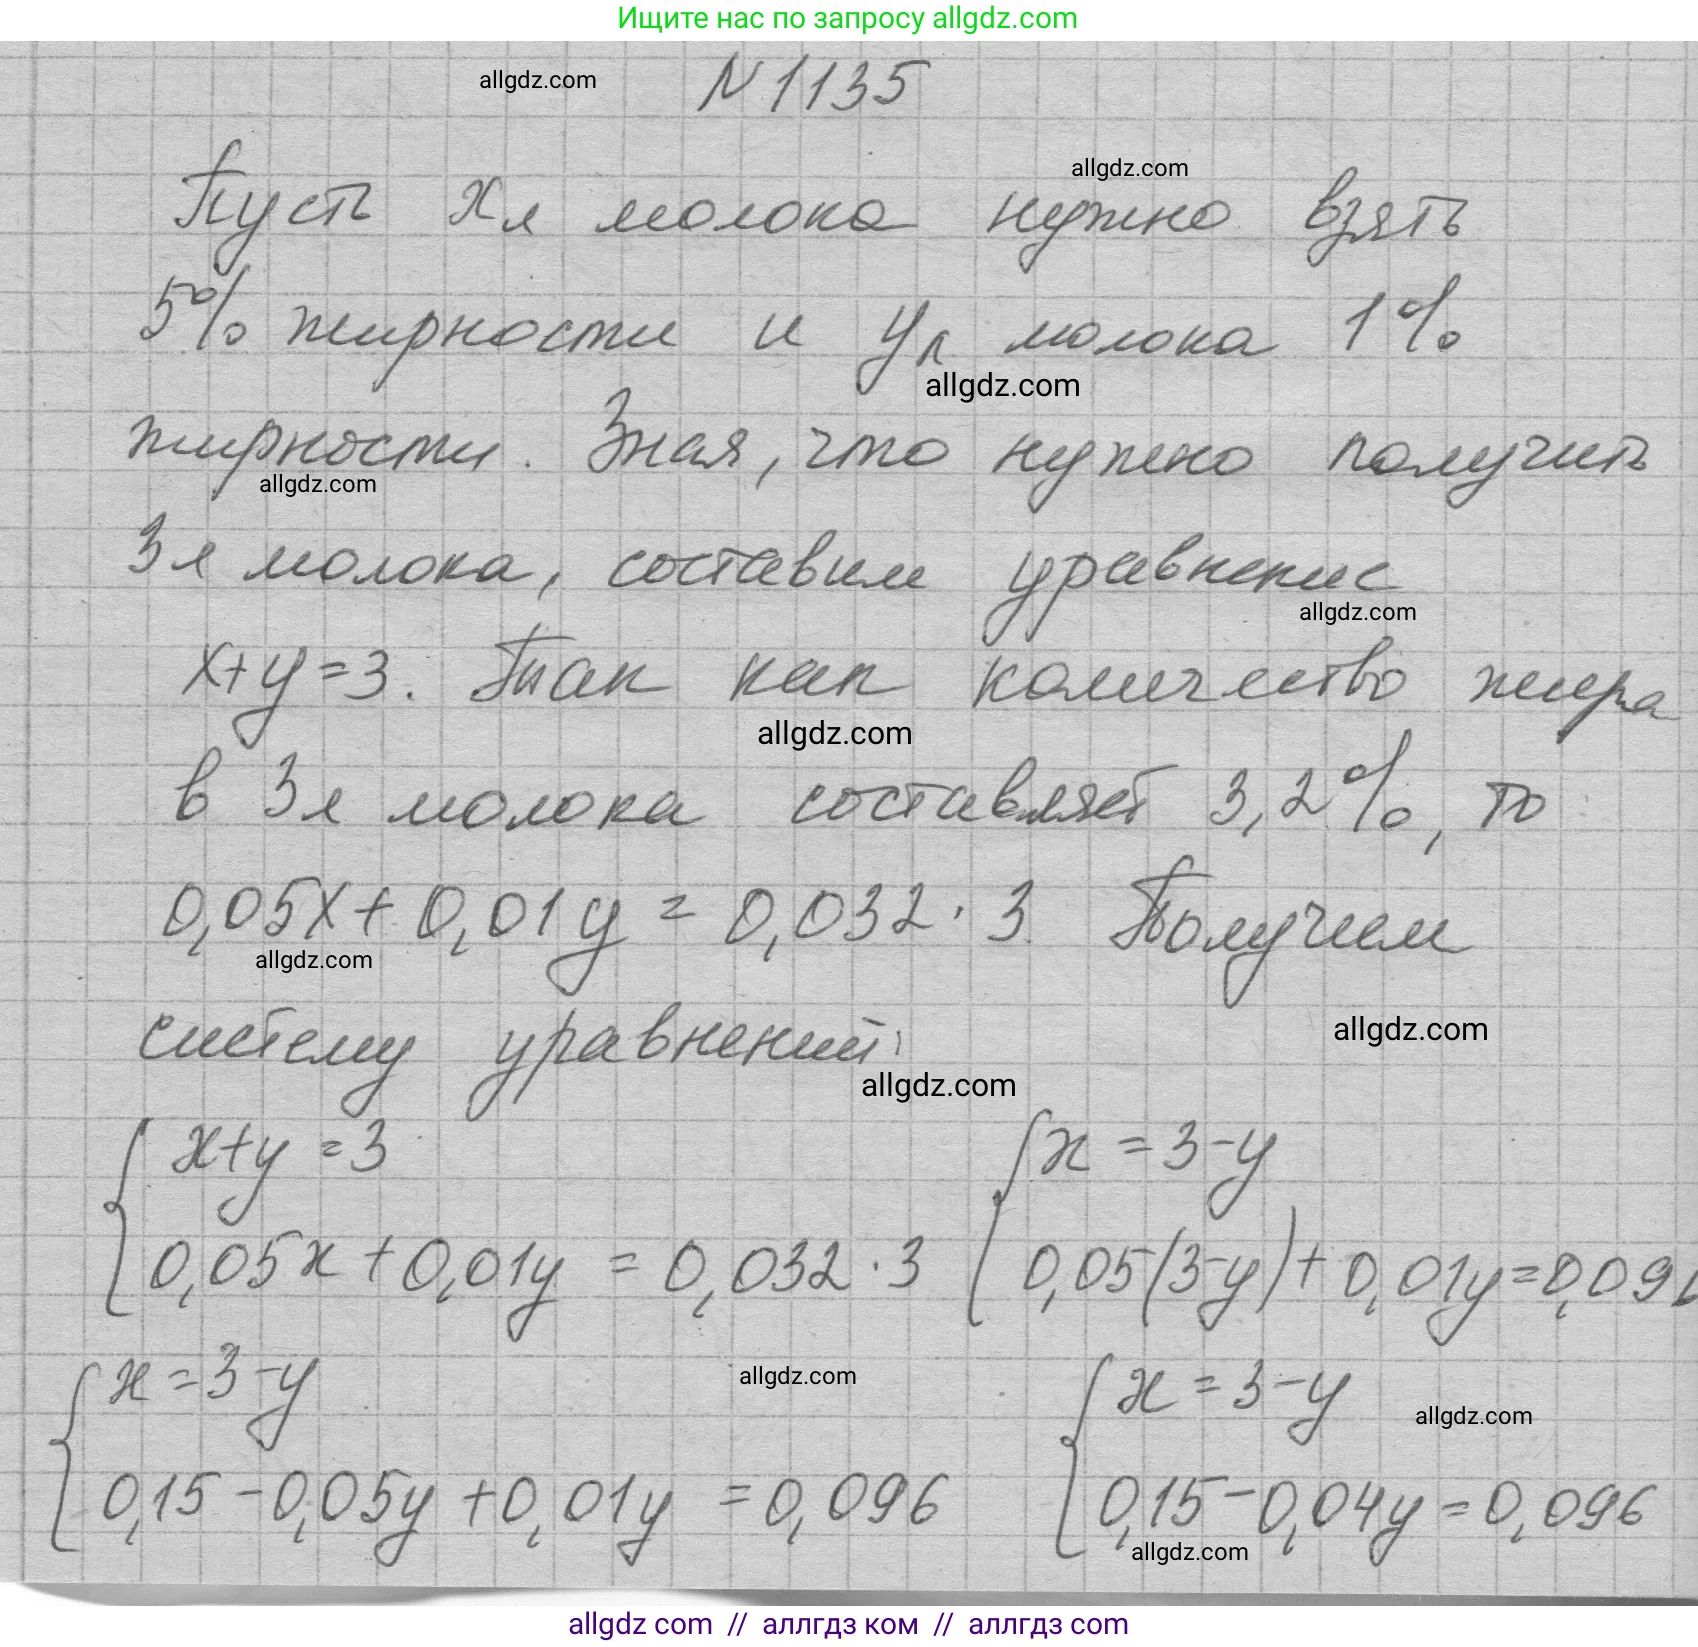 Ищите нас по запросу allgdz.com
allgdz.com
N 1135
allgdz.com
Пусть x л молока нужно взять
5% жирности и y л молока 1%
allgdz.com
жирности. Зная, что нужно получить
allgdz.com
3 л молока, составим уравнение
allgdz.com
x+y=3. Так как количество жира
allgdz.com
в 3 л молока составляет 3,2%, то
0,05x+0,01y = 0,032 · 3. Получим
allgdz.com
систему уравнений:
allgdz.com
allgdz.com
{ x+y=3 { x = 3-y
0,05x+0,01y = 0,032·3 0,05(3-y)+0,01y=0,096
{ x=3-y { x=3-y
allgdz.com
allgdz.com
0,15-0,05y+0,01y = 0,096 0,15-0,04y=0,096
allgdz.com
allgdz com // аллгдз ком // аллгдз com